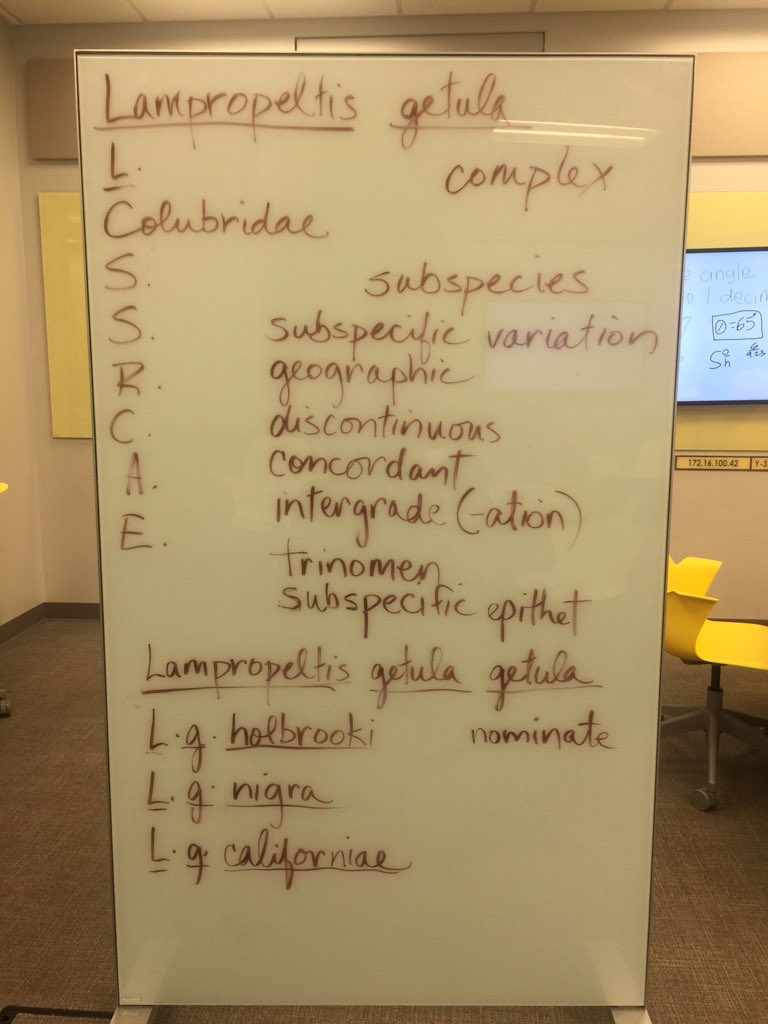 Lampropeltis getula
L. complex
Colubridae
S. subspecies
S. subspecific variation
R. geographic
C. discontinuous
A. concordant
E. intergrade (-ation)
trinomen
subspecific epithet
Lampropeltis getula getula
L. g. holbrooki nominate
L. g. nigra
L. g. californiae
angle
1 decim
O=65°
172.16.100.42 Y-3